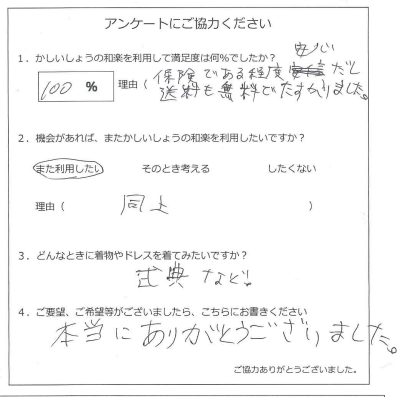 アンケートにご協力ください
1．かしいしょうの和楽を利用して満足度は何％でしたか？
100 %
理由（ 保険である程度安心だし
送料も無料でたすかりました。
2．機会があれば、またかしいしょうの和楽を利用したいですか？
また利用したい そのとき考える したくない
理由（ 同上 ）
3．どんなときに着物やドレスを着てみたいですか？
式典など。
4．ご要望、ご希望等がございましたら、こちらにお書きください
本当にありがとうございました。
ご協力ありがとうございました。